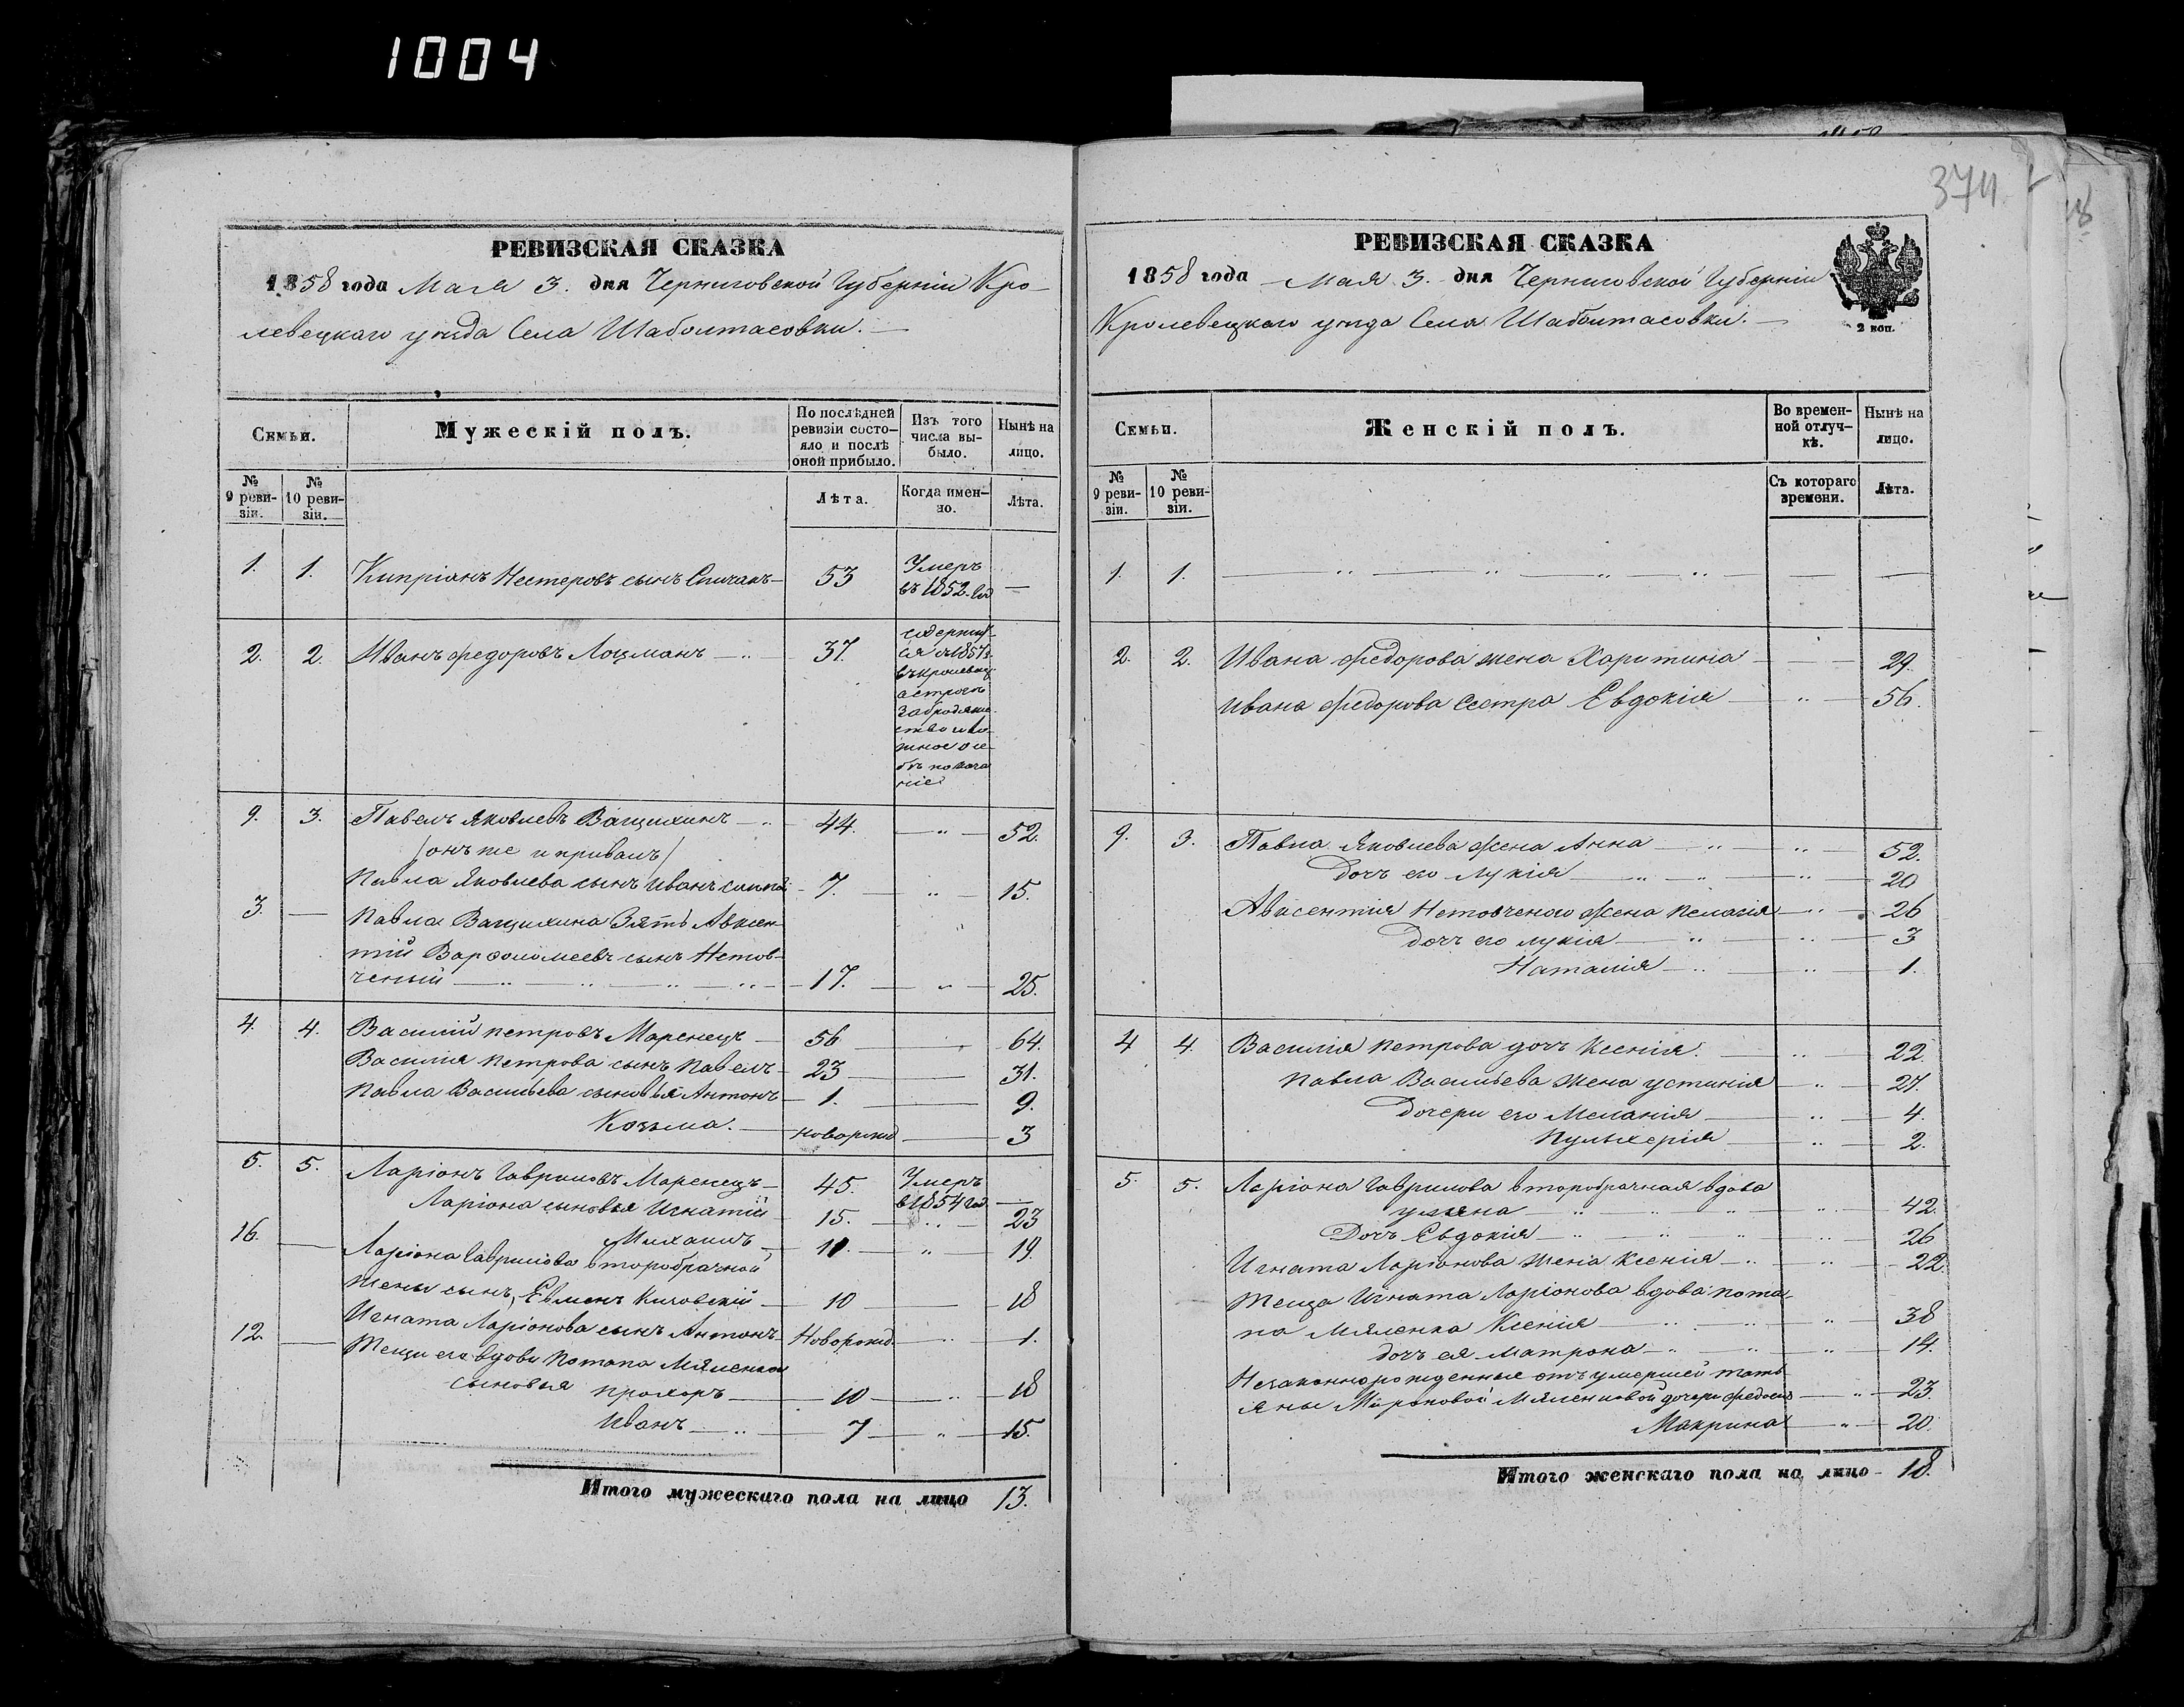 1004
РЕВИЗСКАЯ СКАЗКА
1858 года Мая 3. дня Черниговской Губерніи Кро-
левецкаго уезда Села Шабалтасовки.
Семьи.
Мужескій полъ.
По послѣдней ревизіи состо-яло и послѣ оной прибыло.
Изъ того числа вы-было.
Нынѣ на лицо.
№ 9 реви-зіи.
№ 10 реви-зіи.
Лѣта.
Когда имен-но.
Лѣта.
1. 1. Кипріянъ Нестеровъ сынъ Спичакъ 53 Умеръ въ 1852 год —
2. 2. Иванъ Федоровъ Лоцманъ 37.
9. 3. Павелъ Яковлевъ Ващихинъ 44. 52.
/онъ же и Привалъ/
Павла Яковлева сынъ Иванъ 7. 15.
3. — Павла Ващихина Зять Авксен-
тій Варфоломеевъ сынъ Нетов-
ченый 17. 25.
4. 4. Василій Петровъ Маренецъ 56 64.
Василія Петрова сынъ Павелъ 23 31.
Павла Васильева сыновья Антонъ 1. 9.
Козьма. новорожд 3
5. 5. Ларіонъ Гавриловъ Маренецъ 45. Умеръ в 1854 год —
Ларіона сыновья Игнатій 15. 23
16. — Михаилъ 11. 19.
Ларіона Гаврилова второбрачной
жены сынъ, Евменъ 10 18
Игната Ларіонова сынъ Антонъ Новорожд. 1.
12. — Тещи его вдовы Потапа Мяленка
сыновья Прохоръ 10 18
Иванъ 7 15.
Итого мужескаго пола на лицо 13.
374
РЕВИЗСКАЯ СКАЗКА
1858 года Мая 3. дня Черниговской Губерніи
Кролевецкаго уезда Села Шабалтасовки.
2 коп.
Семьи.
Женскій полъ.
Во времен-ной отлуч-кѣ.
Нынѣ на лицо.
№ 9 реви-зіи.
№ 10 реви-зіи.
Съ котораго времени.
Лѣта.
1. 1.
2. 2. Ивана Федорова жена Харитина 29.
Ивана Федорова Сестра Евдокія 56.
9. 3. Павла Яковлева Жена Анна 52.
Дочъ его Лукія 20
Авксентія Нетовченого Жена Пелагія 26
Дочъ его Лукія 3
Наталія 1.
4 4. Василія Петрова дочъ Ксенія. 22.
Павла Васильева Жена Устинія 27.
Дочери его Меланія 4.
Пульхерія 2.
5. 5. Ларіона Гаврилова второбрачная вдова
Уляна 42.
Дочъ Евдокія 26
Игната Ларіонова Жена Ксенія 22.
Теща Игната Ларіонова вдова Пота-
па Мяленка Ксенія 38
дочъ ея Матрона 14.
Незаконнорожденныя отъ умершей Тать-
яны Мироновой Мяленковой дочери Федосія 23.
Макрина 20.
Итого женскаго пола на лицо 18.